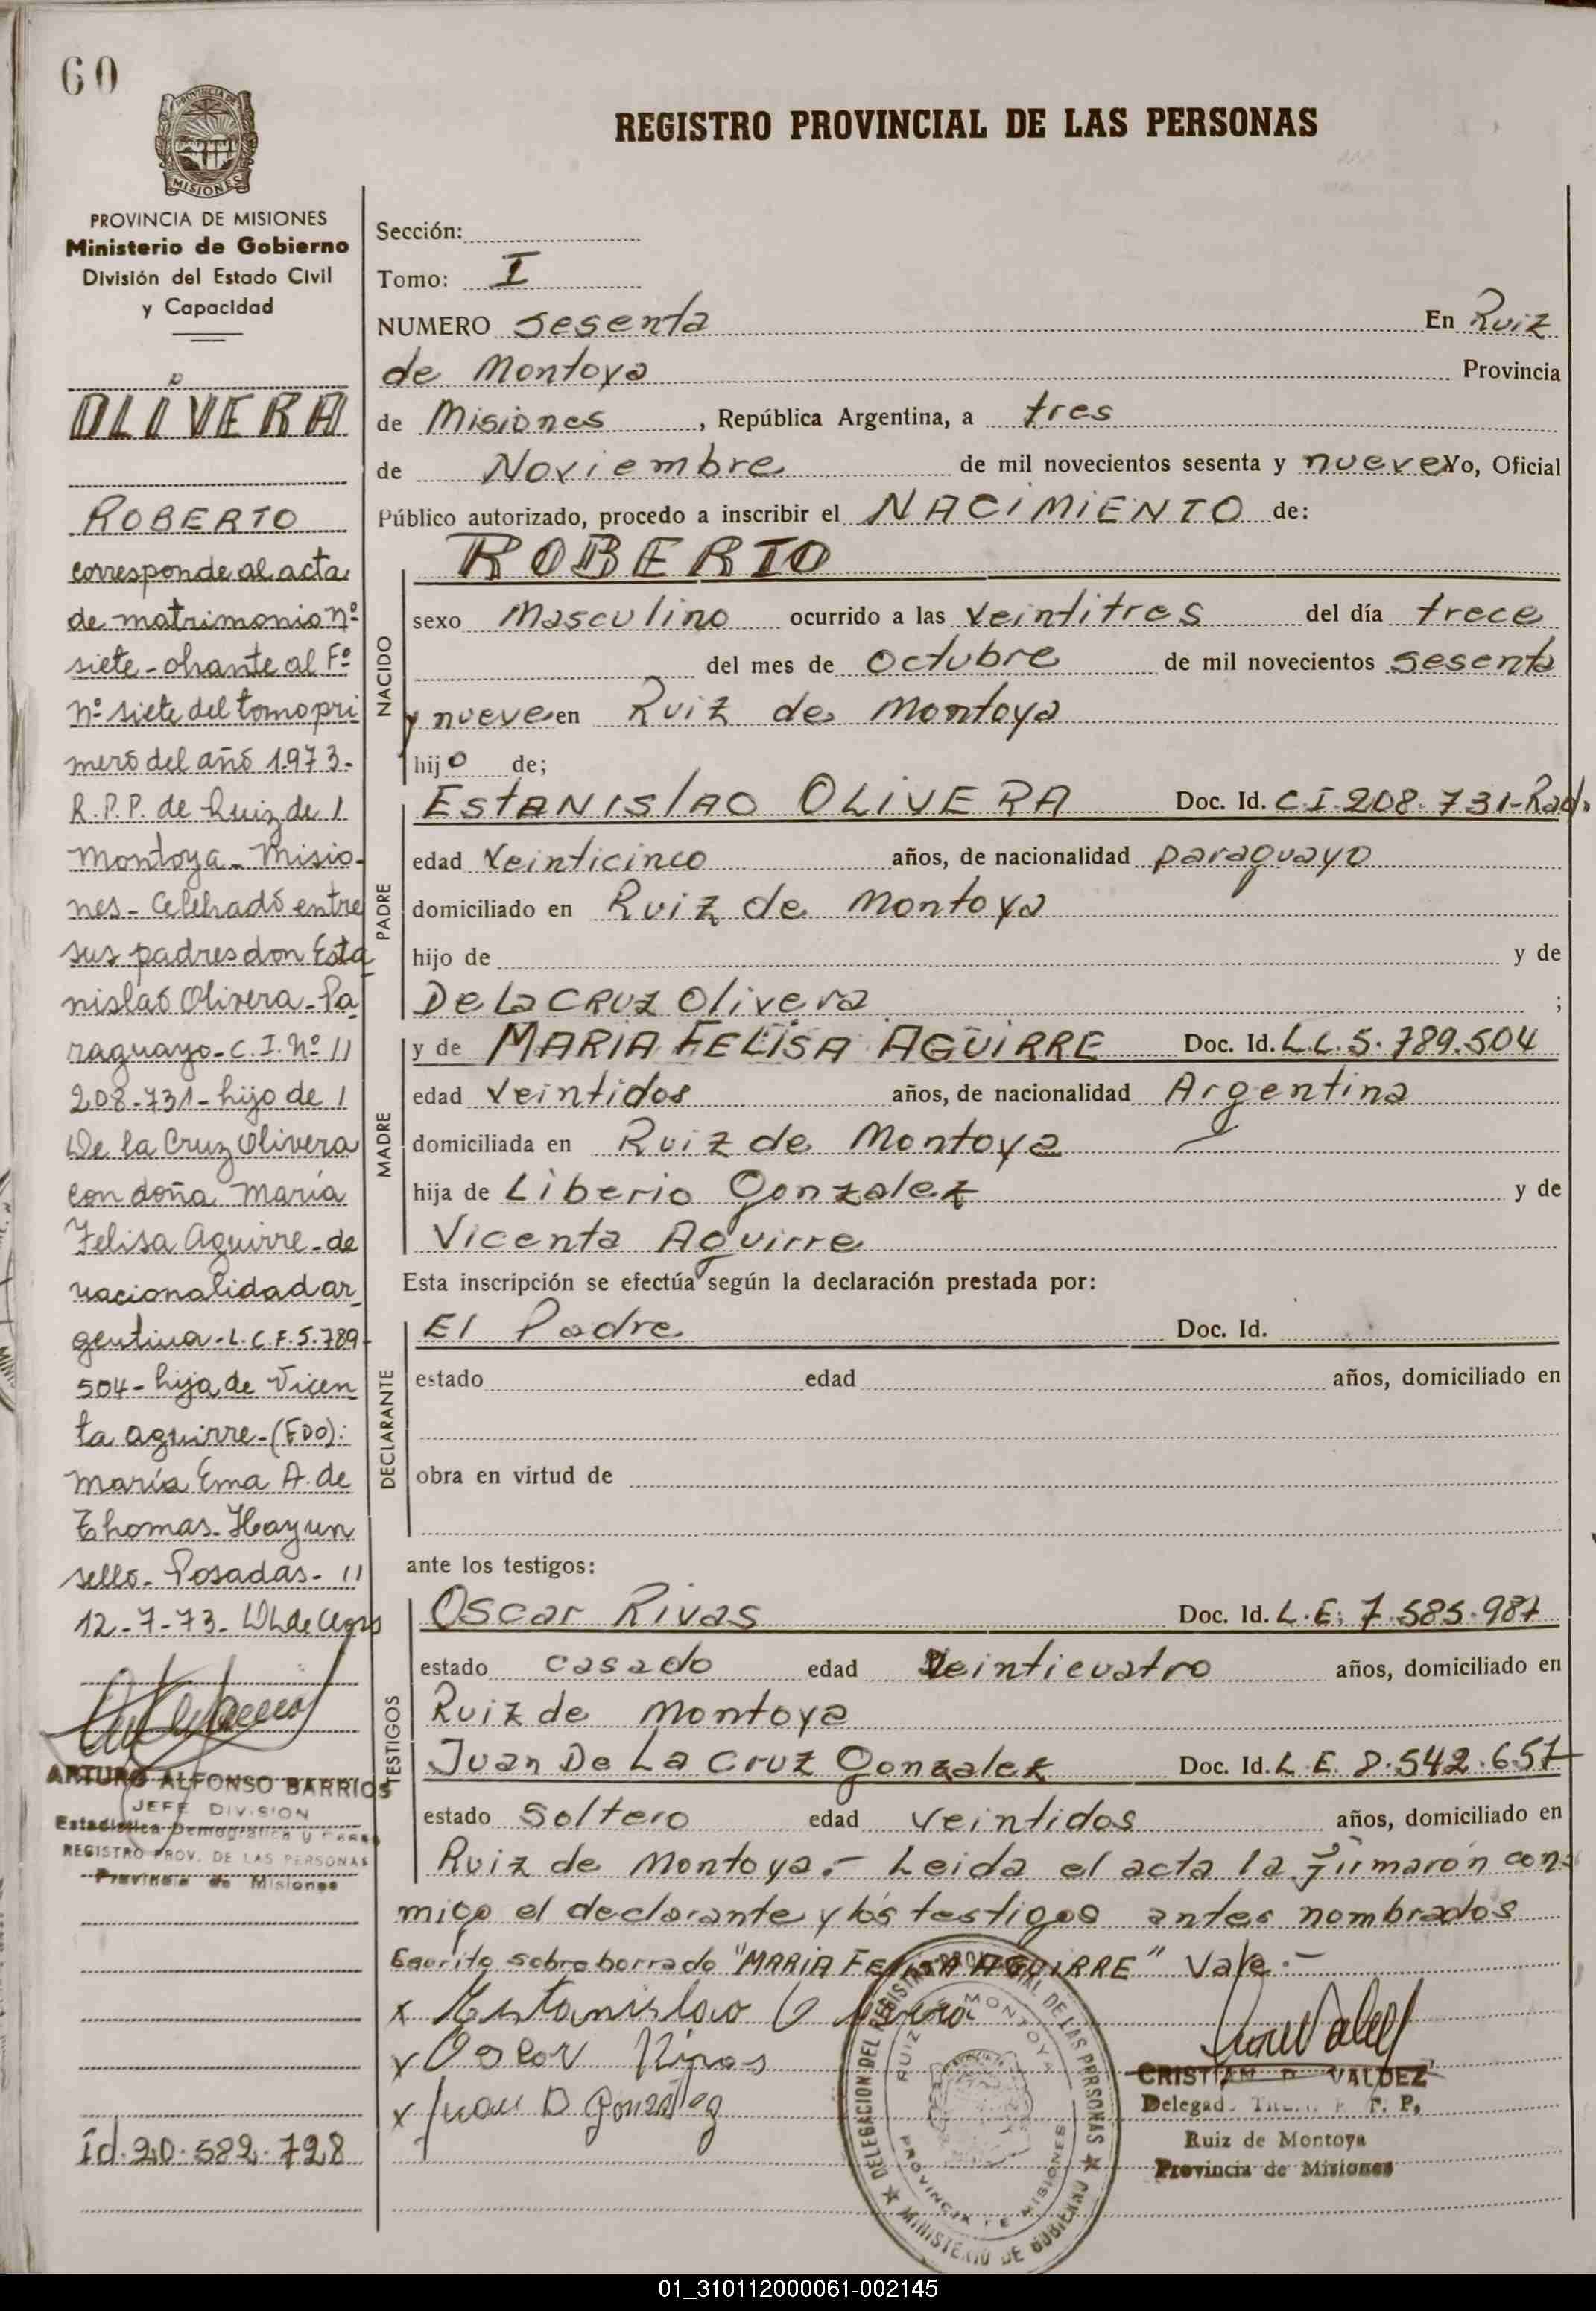 60
REGISTRO PROVINCIAL DE LAS PERSONAS
PROVINCIA DE
MISIONES
PROVINCIA DE MISIONES
Ministerio de Gobierno
División del Estado Civil
y Capacidad
OLIVERA
ROBERTO
corresponde al acta
de matrimonio nº
siete - obrante al Fº
nº siete del tomo pri
mero del año 1973.-
R.P.P. de Ruiz de
Montoya - Misio-
nes - Celebrado entre
sus padres don Esta
nislao Olivera - Pa
raguayo - C.I. Nº
208-731 - hijo de
De la Cruz Olivera
con doña María
Felisa Aguirre - de
nacionalidad ar
gentina - L.C.F. 5.789-
504 - hija de Vicen
ta Aguirre - (FDO):
María Ema A. de
Thomas - Hay un
sello - Posadas -
12-7-73-
ARTURO ALFONSO BARRIOS
JEFE DIVISION
Estadística Demográfica y
REGISTRO PROV. DE LAS PERSONAS
Provincia de Misiones
id. 20.582.728
Sección:
Tomo: I
NUMERO Sesenta En Ruiz
de Montoya Provincia
de Misiones, República Argentina, a tres
de Noviembre de mil novecientos sesenta y nueve Yo, Oficial
Público autorizado, procedo a inscribir el NACIMIENTO de:
ROBERTO
NACIDO
sexo Masculino ocurrido a las veintitres del día trece
del mes de Octubre de mil novecientos sesenta
y nueve en Ruiz de Montoya
hijo de;
PADRE
EstANIslAO OLIVERA Doc. Id. C.I. 208.731-Rad.
edad veinticinco años, de nacionalidad paraguayo
domiciliado en Ruiz de Montoya
hijo de y de
De La CRUZ Olivera ;
MADRE
y de MARIA FELISA AGUIRRE Doc. Id. L.C. 5.789.504
edad veintidos años, de nacionalidad Argentina
domiciliada en Ruiz de Montoya
hija de Liberio Gonzalez y de
Vicenta Aguirre
Esta inscripción se efectúa según la declaración prestada por:
DECLARANTE
El Padre Doc. Id.
estado edad años, domiciliado en
obra en virtud de
ante los testigos:
TESTIGOS
Oscar Rivas Doc. Id. L.E. 7.585.987
estado casado edad Veinticuatro años, domiciliado en
Ruiz de Montoya
Juan De La Cruz Gonzalez Doc. Id. L.E. 8.542.657
estado Soltero edad veintidos años, domiciliado en
Ruiz de Montoya.- Leida el acta la firmarón con-
migo el declarante y los testigos antes nombrados
Escrito sobre borrado "MARIA FELISA AGUIRRE" Vale.-
x Estanislao Olivera
x Oscar Rivas
x Juan D Gonzalez
DELEGACION DEL REGISTRO PROVINCIAL DE LAS PERSONAS
RUIZ DE MONTOYA
PROVINCIA DE MISIONES
MINISTERIO DE GOBIERNO
CRISTIAN D. VALDEZ
Ruiz de Montoya
Provincia de Misiones
01_310112000061-002145